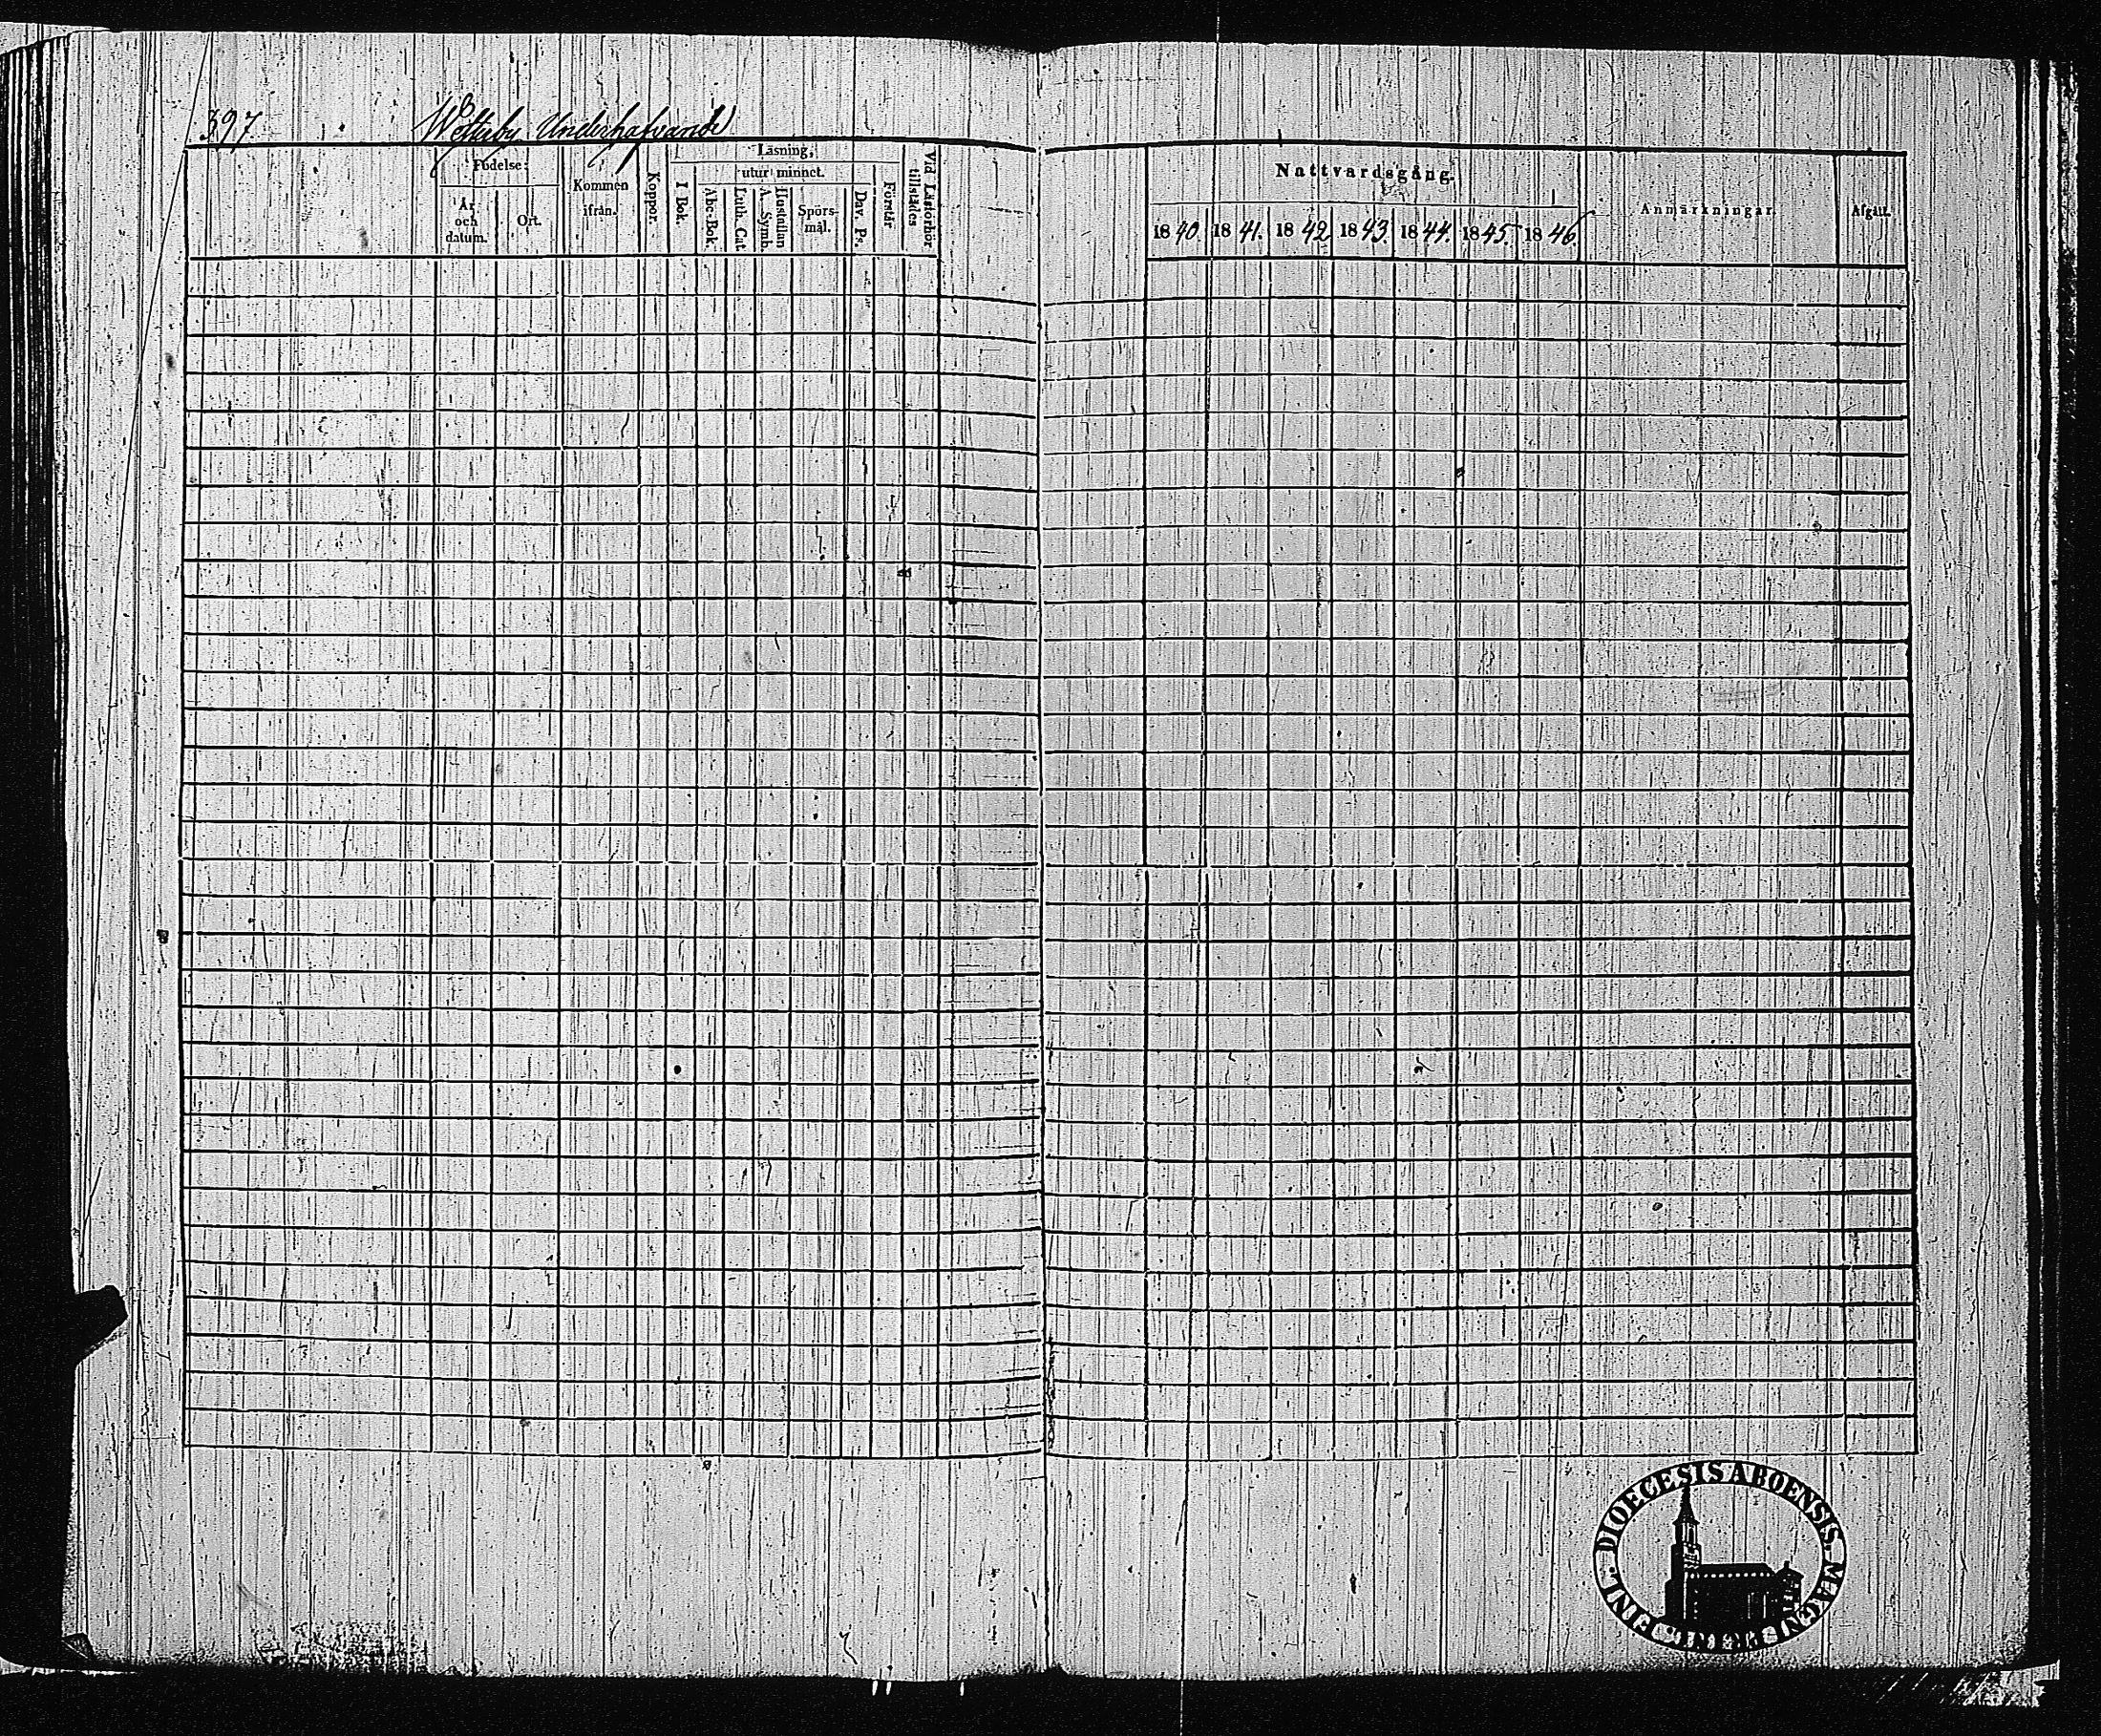 397 Underhafvande
Födelse:
År och datum.
Ort.
Kommen ifrån.
Koppor.
Läsning,
I Bok.
utur minnet.
Abc-Bok.
Luth. Cat.
A. Symb.
Hustaflan
Spörs-mål.
Dav. Ps.
Förstår
Vid Läsförhör tillstädes
Nattvardsgång.
1840. 1841. 1842 1843. 1844. 1845. 1846.
Anmärkningar.
Afgått.
DIOECESIS ABOENSIS. MAGNI FENL.